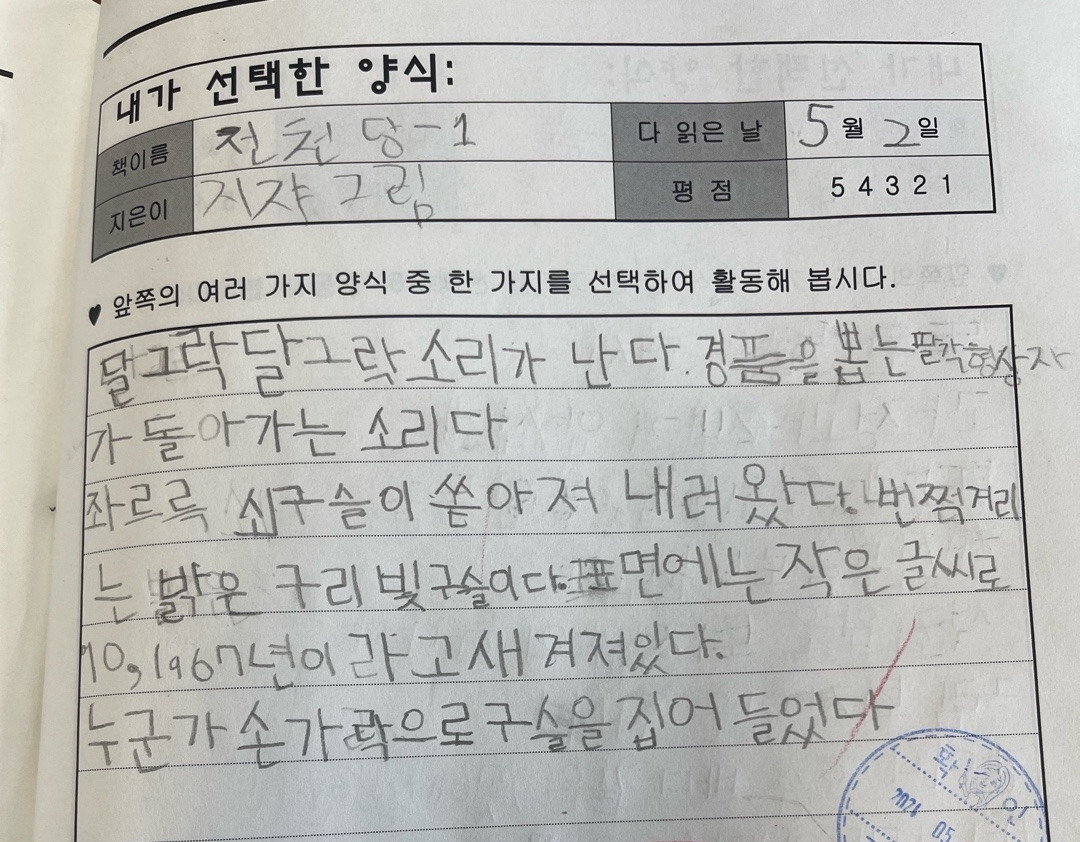 내가 선택한 양식:
책이름 전천당-1 다 읽은 날 5월 2일
지은이 지쟈 그림 평 점 5 4 3 2 1
♥ 앞쪽의 여러 가지 양식 중 한 가지를 선택하여 활동해 봅시다.
달그락 달그락 소리가 난다. 경품을 뽑는 팔각형 상자
가 돌아가는 소리다
좌르륵 쇠구슬이 쏟아져 내려 왔다. 번쩍거리
는 밝은 구리 빛 구슬이다. 표면에는 작은 글씨로
10, 1967년이라고 새겨져있다.
누군가 손가락으로 구슬을 집어 들었다
확인
2024 05